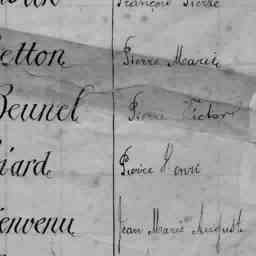 François Pierre
etton Pierre Marie
Beunel Pierre Victor
iard Pierre Henri
envenu Jean Marie Auguste